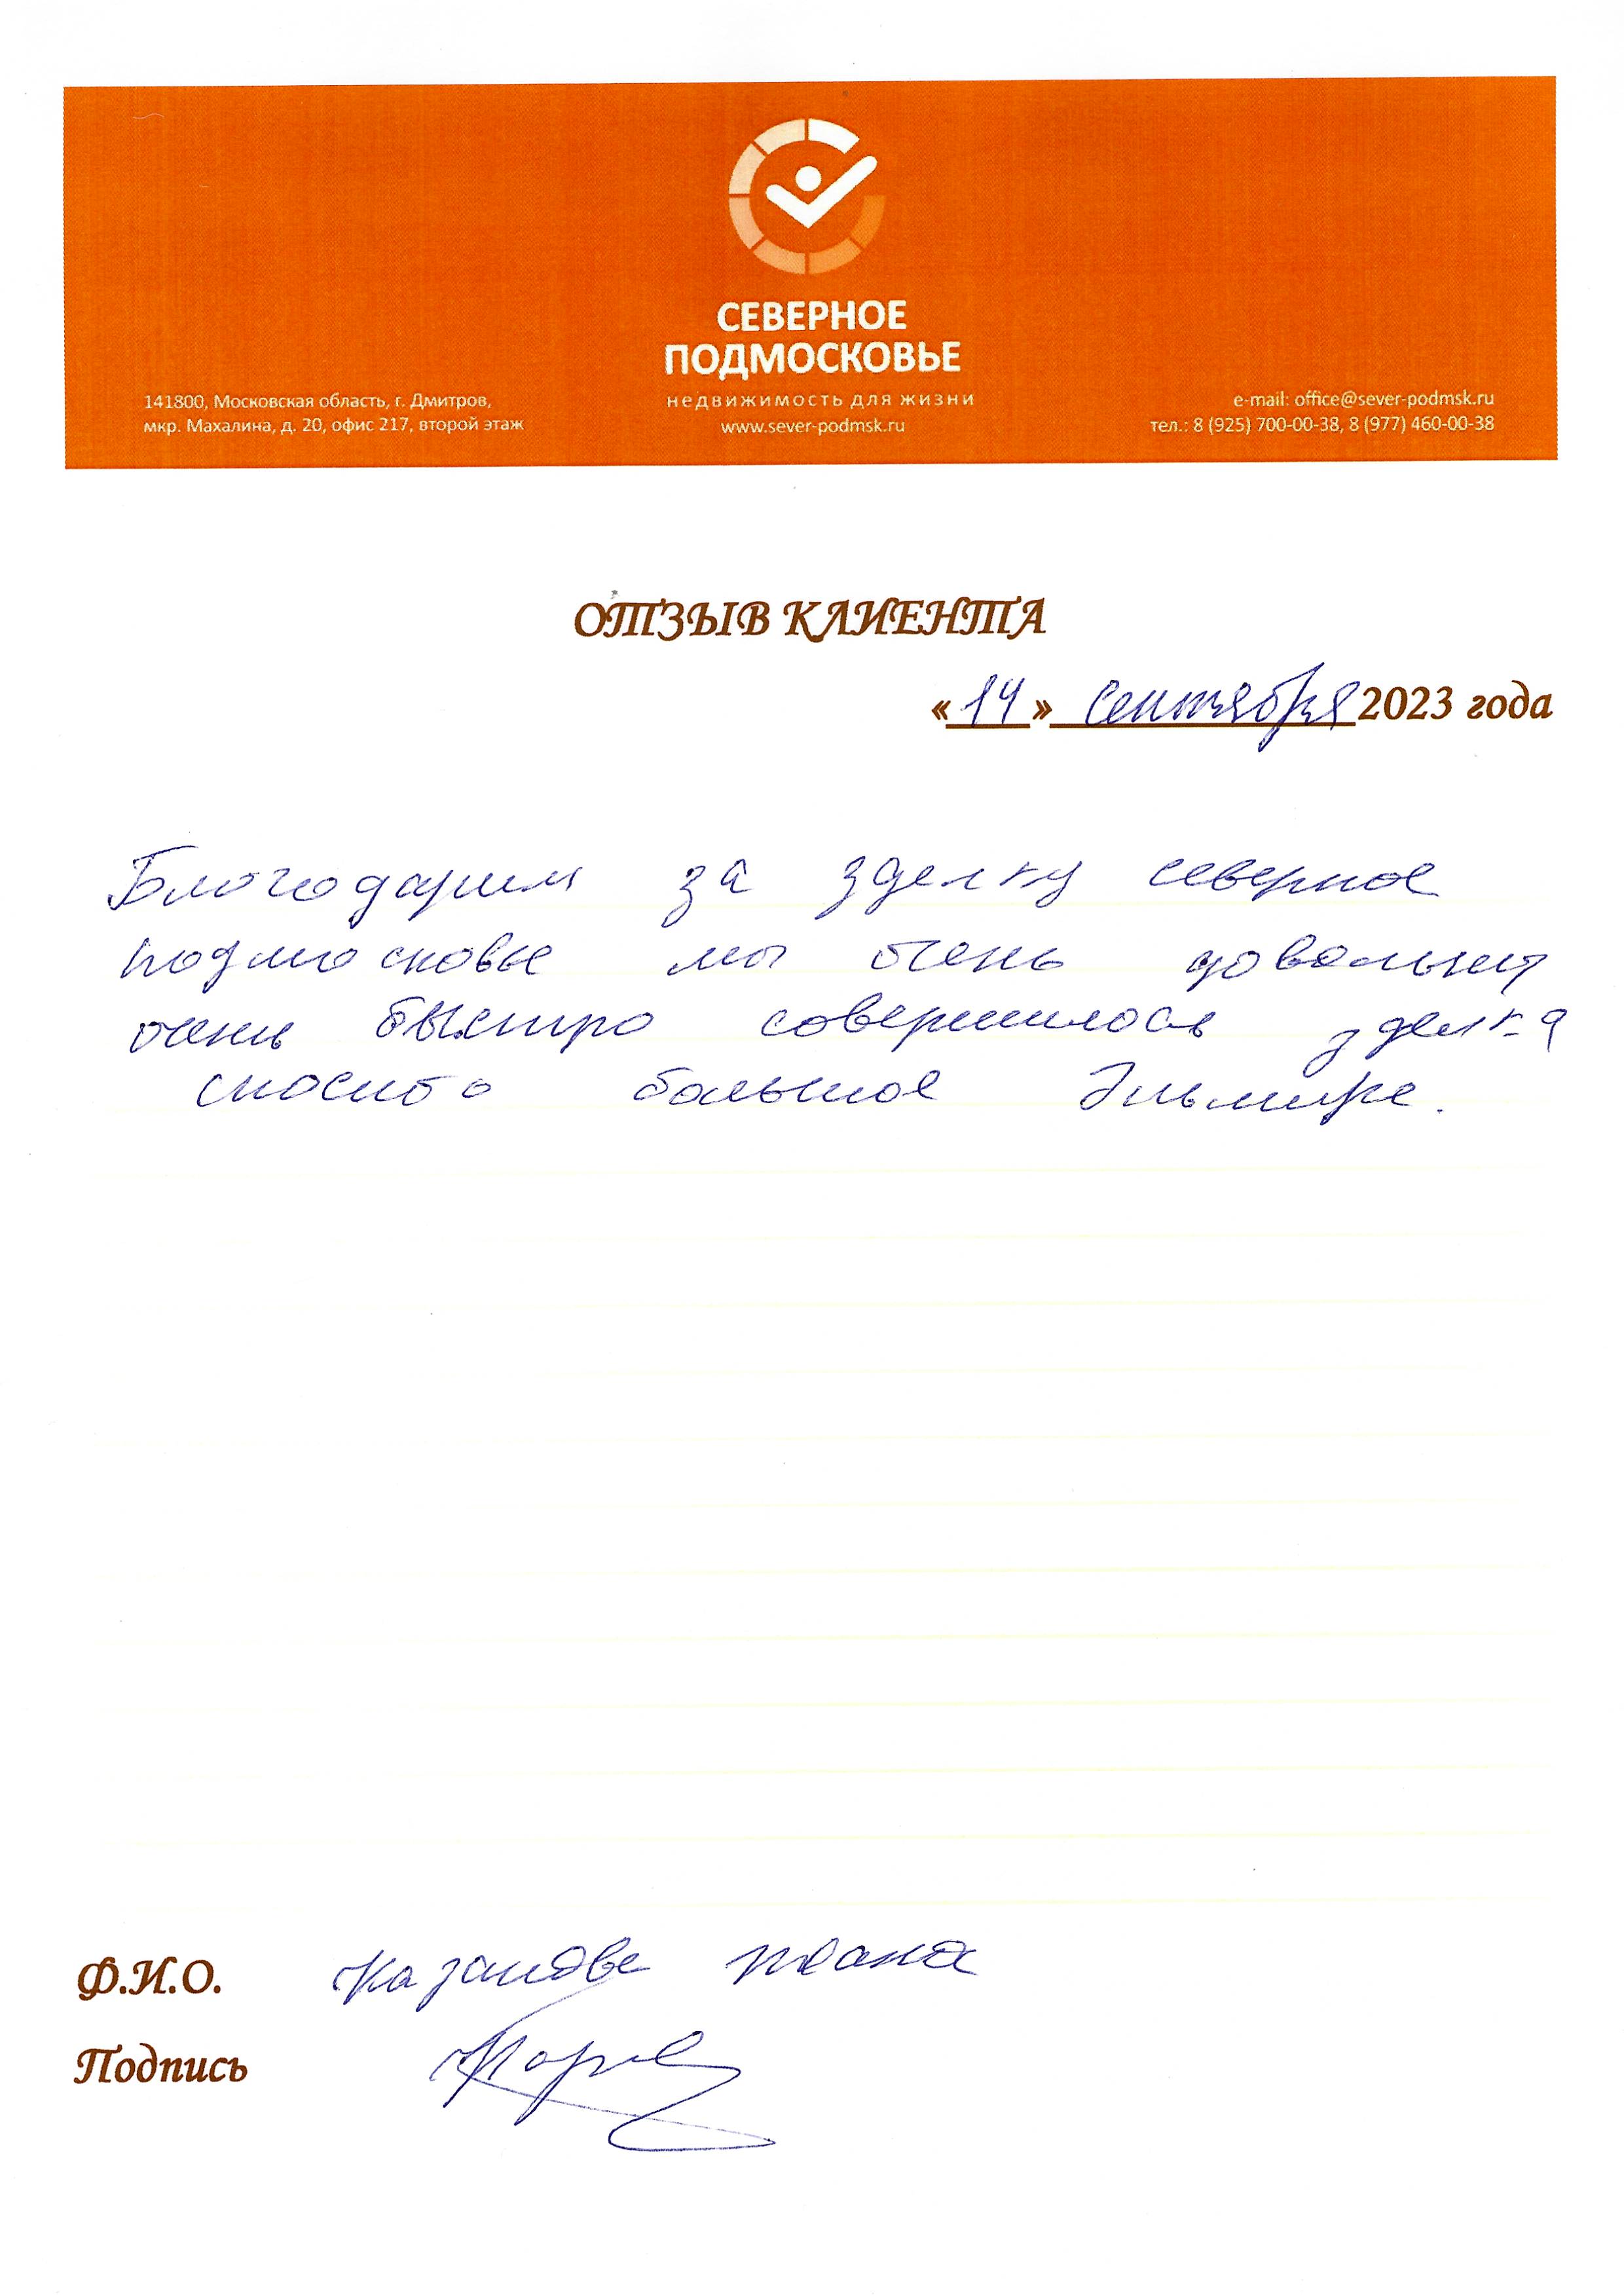 СЕВЕРНОЕ
ПОДМОСКОВЬЕ
недвижимость для жизни
www.sever-podmsk.ru
141800, Московская область, г. Дмитров,
мкр. Махалина, д. 20, офис 217, второй этаж
e-mail: office@sever-podmsk.ru
тел.: 8 (925) 700-00-38, 8 (977) 460-00-38
ОТЗЫВ КЛИЕНТА
«14» сентября 2023 года
Благодарим за зделку северное
подмосковье мы очень довольны
очень быстро совершилось зделка
спосибо большое Эльмире.
Ф.И.О.
Подпись